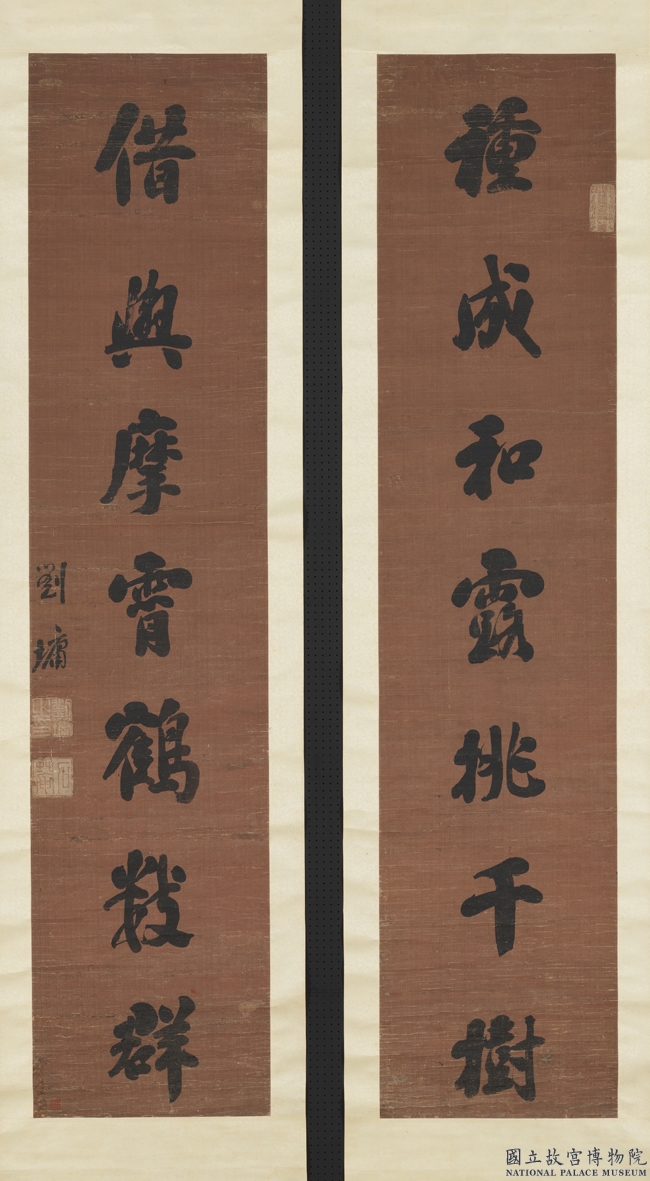 種成和露桃千樹
借與摩霄鶴數群
劉墉
國立故宮博物院
NATIONAL PALACE MUSEUM